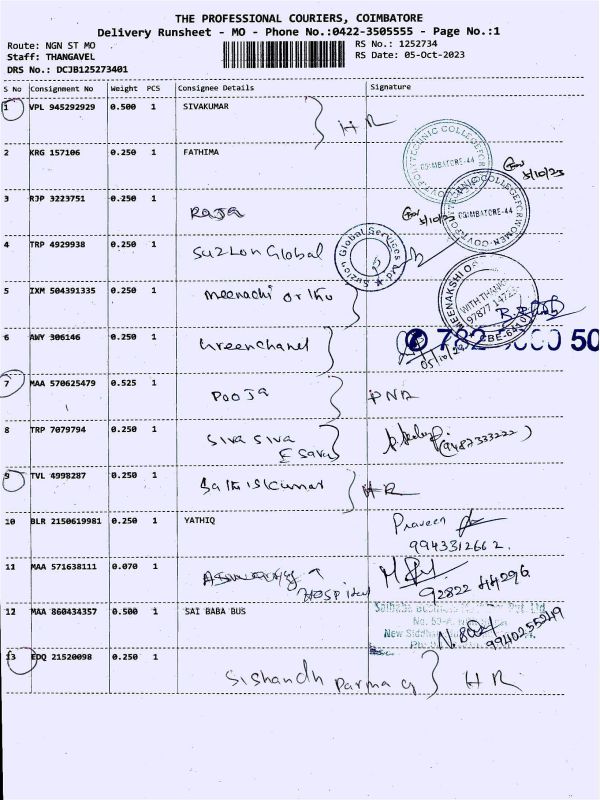 THE PROFESSIONAL COURIERS, COIMBATORE
Delivery Runsheet - MO - Phone No.:0422-3505555 - Page No.:1
Route: NGN ST MO
RS No.: 1252734
Staff: THANGAVEL
RS Date: 05-Oct-2023
DRS No.: DCJB125273401
S No Consignment No Weight PCS Consignee Details Signature
1 VPL 945292929 0.500 1 SIVAKUMAR HR
2 KRG 157106 0.250 1 FATHIMA
COIMBATORE-44
5/10/23
3 RJP 3223751 0.250 1 RAJA
5/10/23
COIMBATORE-44
4 TRP 4929938 0.250 1 Suzlon Global
Suzlon Global Services Ltd
5 IXM 504391335 0.250 1 meenachi ortho
WITH THANKS
6 AWY 306146 0.250 1 Greenchanel
05/10/23
7 MAA 570625479 0.525 1 POOJA PNR
8 TRP 7079794 0.250 1 Siva Siva
Esavar
(9487333222)
9 TVL 4998287 0.250 1 Sathiskumar HR
10 BLR 2150619981 0.250 1 YATHIQ Praveen
9943312662.
11 MAA 571638111 0.070 1
HOSPital
92822 44296
12 MAA 860434357 0.500 1 SAI BABA BUS
9940255249
13 EDQ 21520098 0.250 1
Sishandh Parma HR